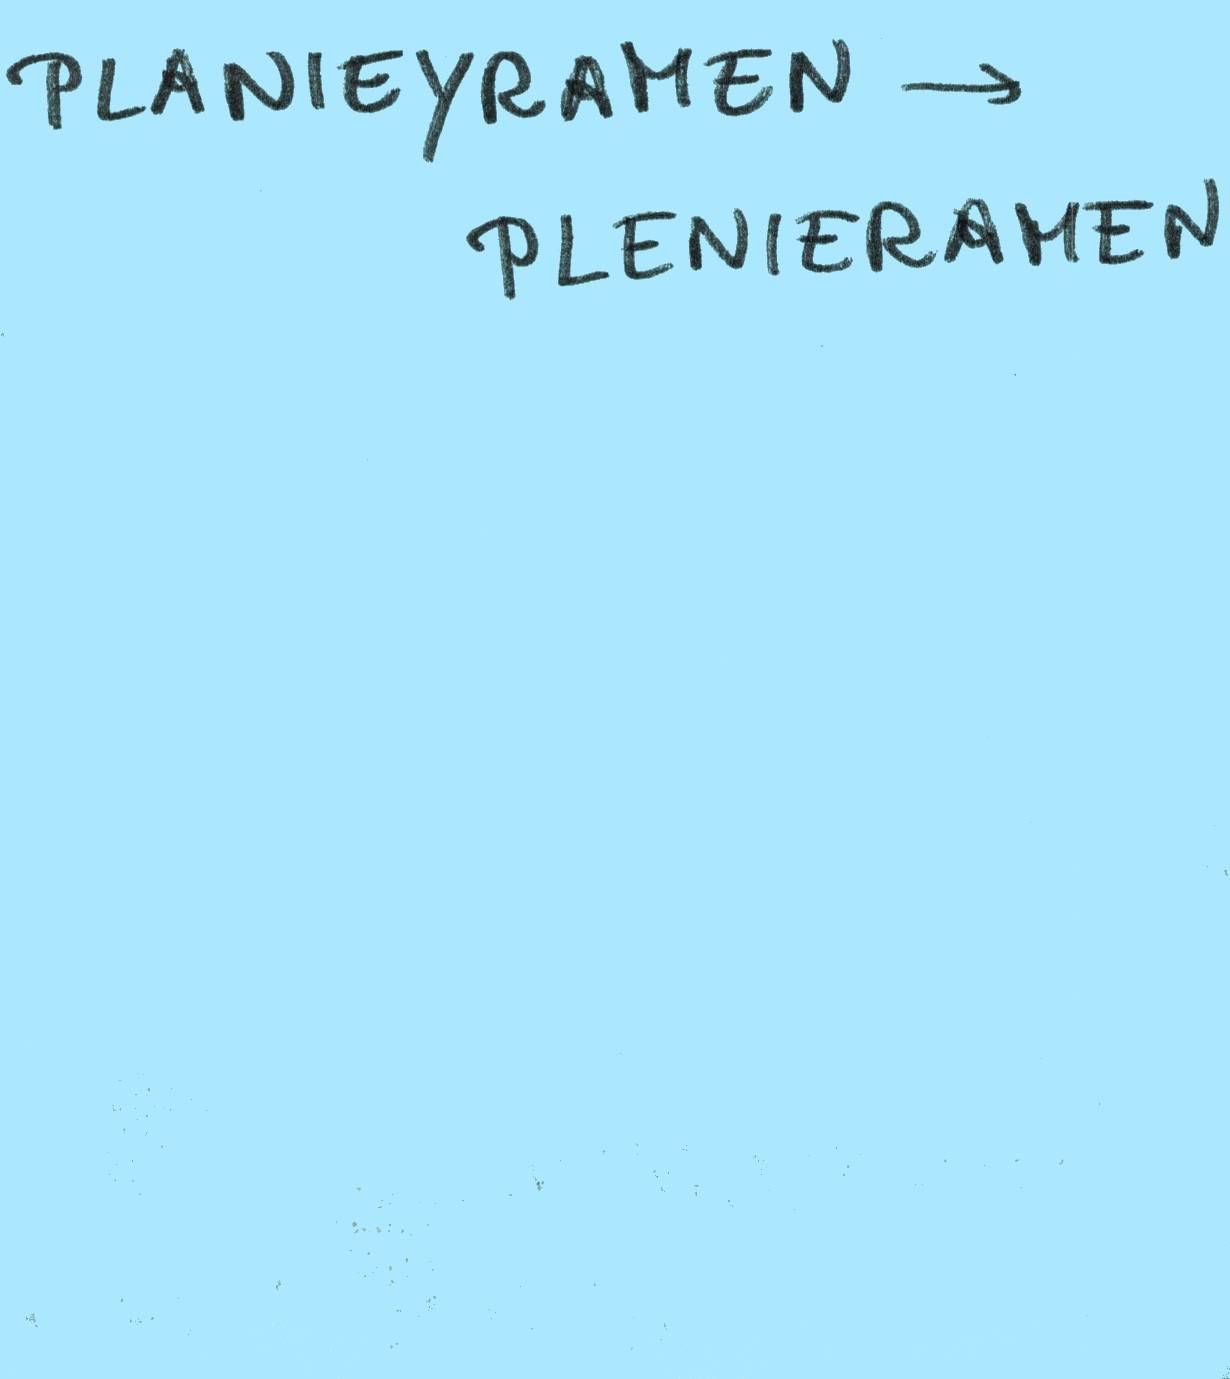 PLANIEYRAMEN →
PLENIERAMEN